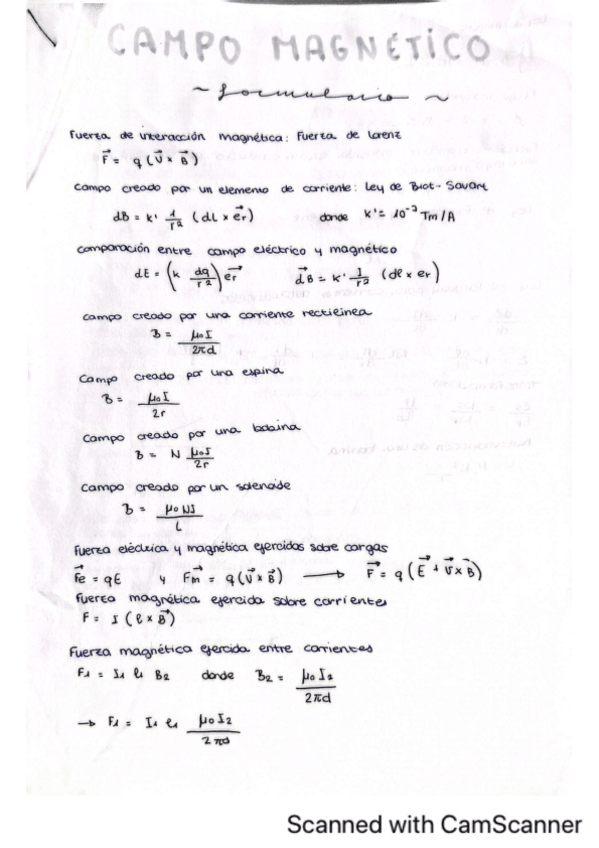 CAMPO MAGNÉTICO
~ formulario ~
Fuerza de interacción magnética: Fuerza de Lorenz
F⃗ = q (v⃗ × B⃗)
Campo creado por un elemento de corriente: Ley de Biot-Savart
dB = k' 1/r² (dl × e⃗r) donde k' = 10⁻⁷ Tm/A
comparación entre campo eléctrico y magnético
dE = (k dq/r²) e⃗r d⃗B = k' 1/r² (dl × er)
campo creado por una corriente rectilínea
B = μ₀I/2πd
Campo creado por una espira
B = μ₀I/2r
Campo creado por una bobina
B = N μ₀I/2r
Campo creado por un solenoide
B = μ₀NI/L
Fuerza eléctrica y magnética ejercidas sobre cargas
F⃗e = qE y F⃗m = q(v⃗ × B⃗) ⟶ F⃗ = q (E⃗ + v⃗ × B⃗)
fuerza magnética ejercida sobre corrientes
F = I (l × B⃗)
Fuerza magnética ejercida entre corrientes
F₁ = I₁ l₁ B₂ donde B₂ = μ₀I₂/2πd
→ F₁ = I₁ l₁ μ₀I₂/2πd
Scanned with CamScanner